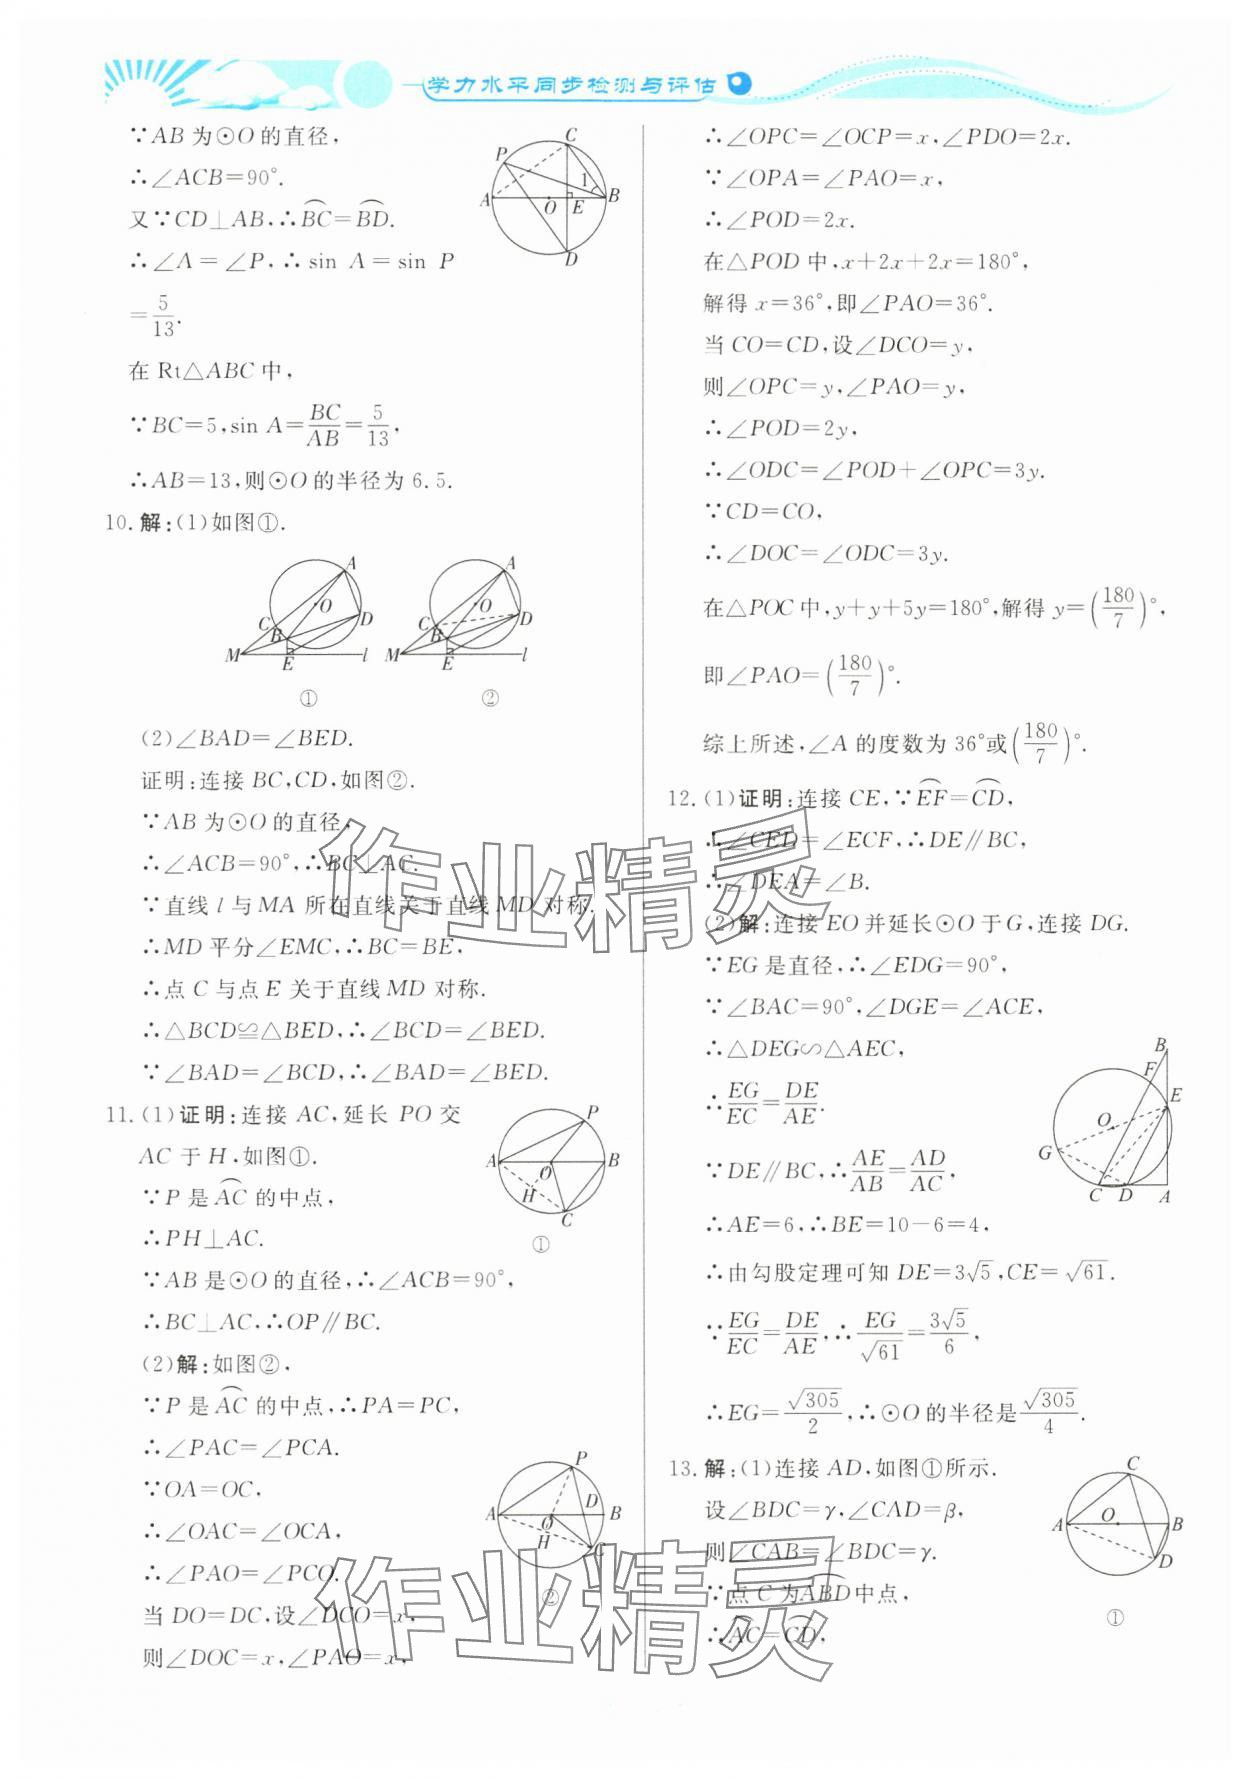 学力水平同步检测与评估
∵AB为⊙O的直径,
∴∠ACB=90°.
又∵CD⊥AB,∴⌒BC=⌒BD.
∴∠A=∠P,∴sin A=sin P
=5/13.
在Rt△ABC中,
∵BC=5,sin A=BC/AB=5/13,
∴AB=13,则⊙O的半径为6.5.
C P 1 A O E B D
10.解:(1)如图①.
A O C B D M E l
A O C B D M E l
① ②
(2)∠BAD=∠BED.
证明:连接BC,CD,如图②.
∵AB为⊙O的直径,
∴∠ACB=90°,∴BC⊥AC.
∵直线l与MA所在直线关于直线MD对称.
∴MD平分∠EMC,∴BC=BE,
∴点C与点E关于直线MD对称.
∴△BCD≌△BED,∴∠BCD=∠BED.
∵∠BAD=∠BCD,∴∠BAD=∠BED.
11.(1)证明:连接AC,延长PO交
AC于H,如图①.
∵P是⌒AC的中点,
∴PH⊥AC.
∵AB是⊙O的直径,∴∠ACB=90°,
∴BC⊥AC,∴OP∥BC.
P A O B H C
①
(2)解:如图②,
∵P是⌒AC的中点,∴PA=PC,
∴∠PAC=∠PCA.
∵OA=OC,
∴∠OAC=∠OCA,
∴∠PAO=∠PCO.
当DO=DC,设∠DCO=x,
则∠DOC=x,∠PAO=x,
P D A O B H C
②
∴∠OPC=∠OCP=x,∠PDO=2x.
∵∠OPA=∠PAO=x,
∴∠POD=2x.
在△POD中,x+2x+2x=180°,
解得x=36°,即∠PAO=36°.
当CO=CD,设∠DCO=y,
则∠OPC=y,∠PAO=y,
∴∠POD=2y,
∴∠ODC=∠POD+∠OPC=3y.
∵CD=CO,
∴∠DOC=∠ODC=3y.
在△POC中,y+y+5y=180°,解得y=(180/7)°,
即∠PAO=(180/7)°.
综上所述,∠A的度数为36°或(180/7)°.
12.(1)证明:连接CE,∵⌒EF=⌒CD,
∴∠CED=∠ECF,∴DE∥BC,
∴∠DEA=∠B.
(2)解:连接EO并延长⊙O于G,连接DG.
∵EG是直径,∴∠EDG=90°,
∵∠BAC=90°,∠DGE=∠ACE,
∴△DEG∽△AEC,
∴EG/EC=DE/AE.
∵DE∥BC,∴AE/AB=AD/AC,
∴AE=6,∴BE=10-6=4,
∴由勾股定理可知DE=3√5,CE=√61.
∵EG/EC=DE/AE,∴EG/√61=3√5/6,
∴EG=√305/2,∴⊙O的半径是√305/4.
B F E O G C D A
13.解:(1)连接AD,如图①所示.
设∠BDC=γ,∠CAD=β,
则∠CAB=∠BDC=γ.
∵点C为⌒ABD中点,
∴⌒AC=⌒CD,
C A O B D
①
作业精灵
作业精灵